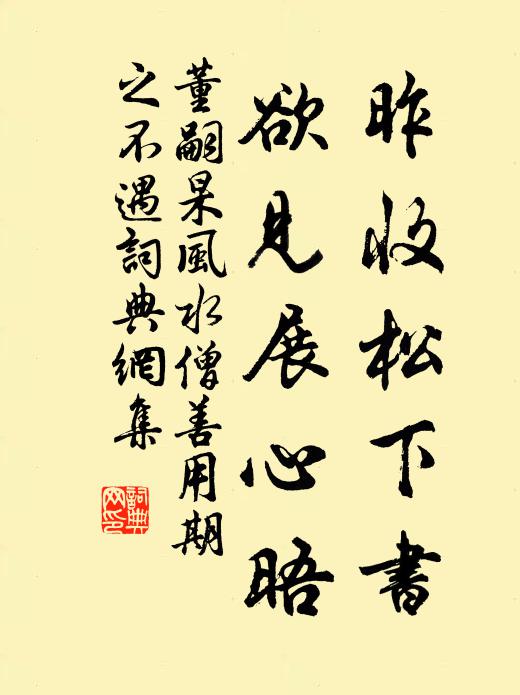 昨收松下書
欲見展心晤
董嗣杲風水僧善用期
之不遇詞典網集
詞典
网印